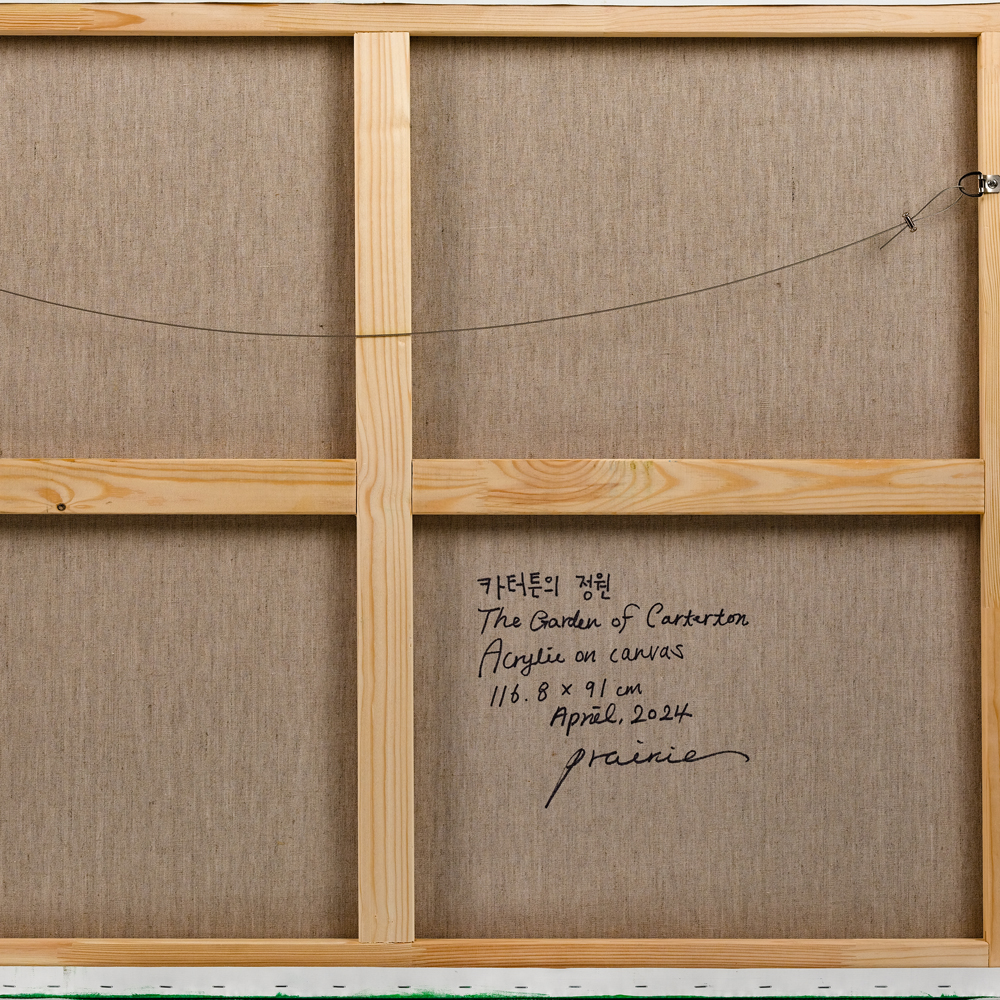 카터튼의 정원
The Garden of Carterton
Acrylic on canvas
116.8 x 91 cm
April, 2024
prairie